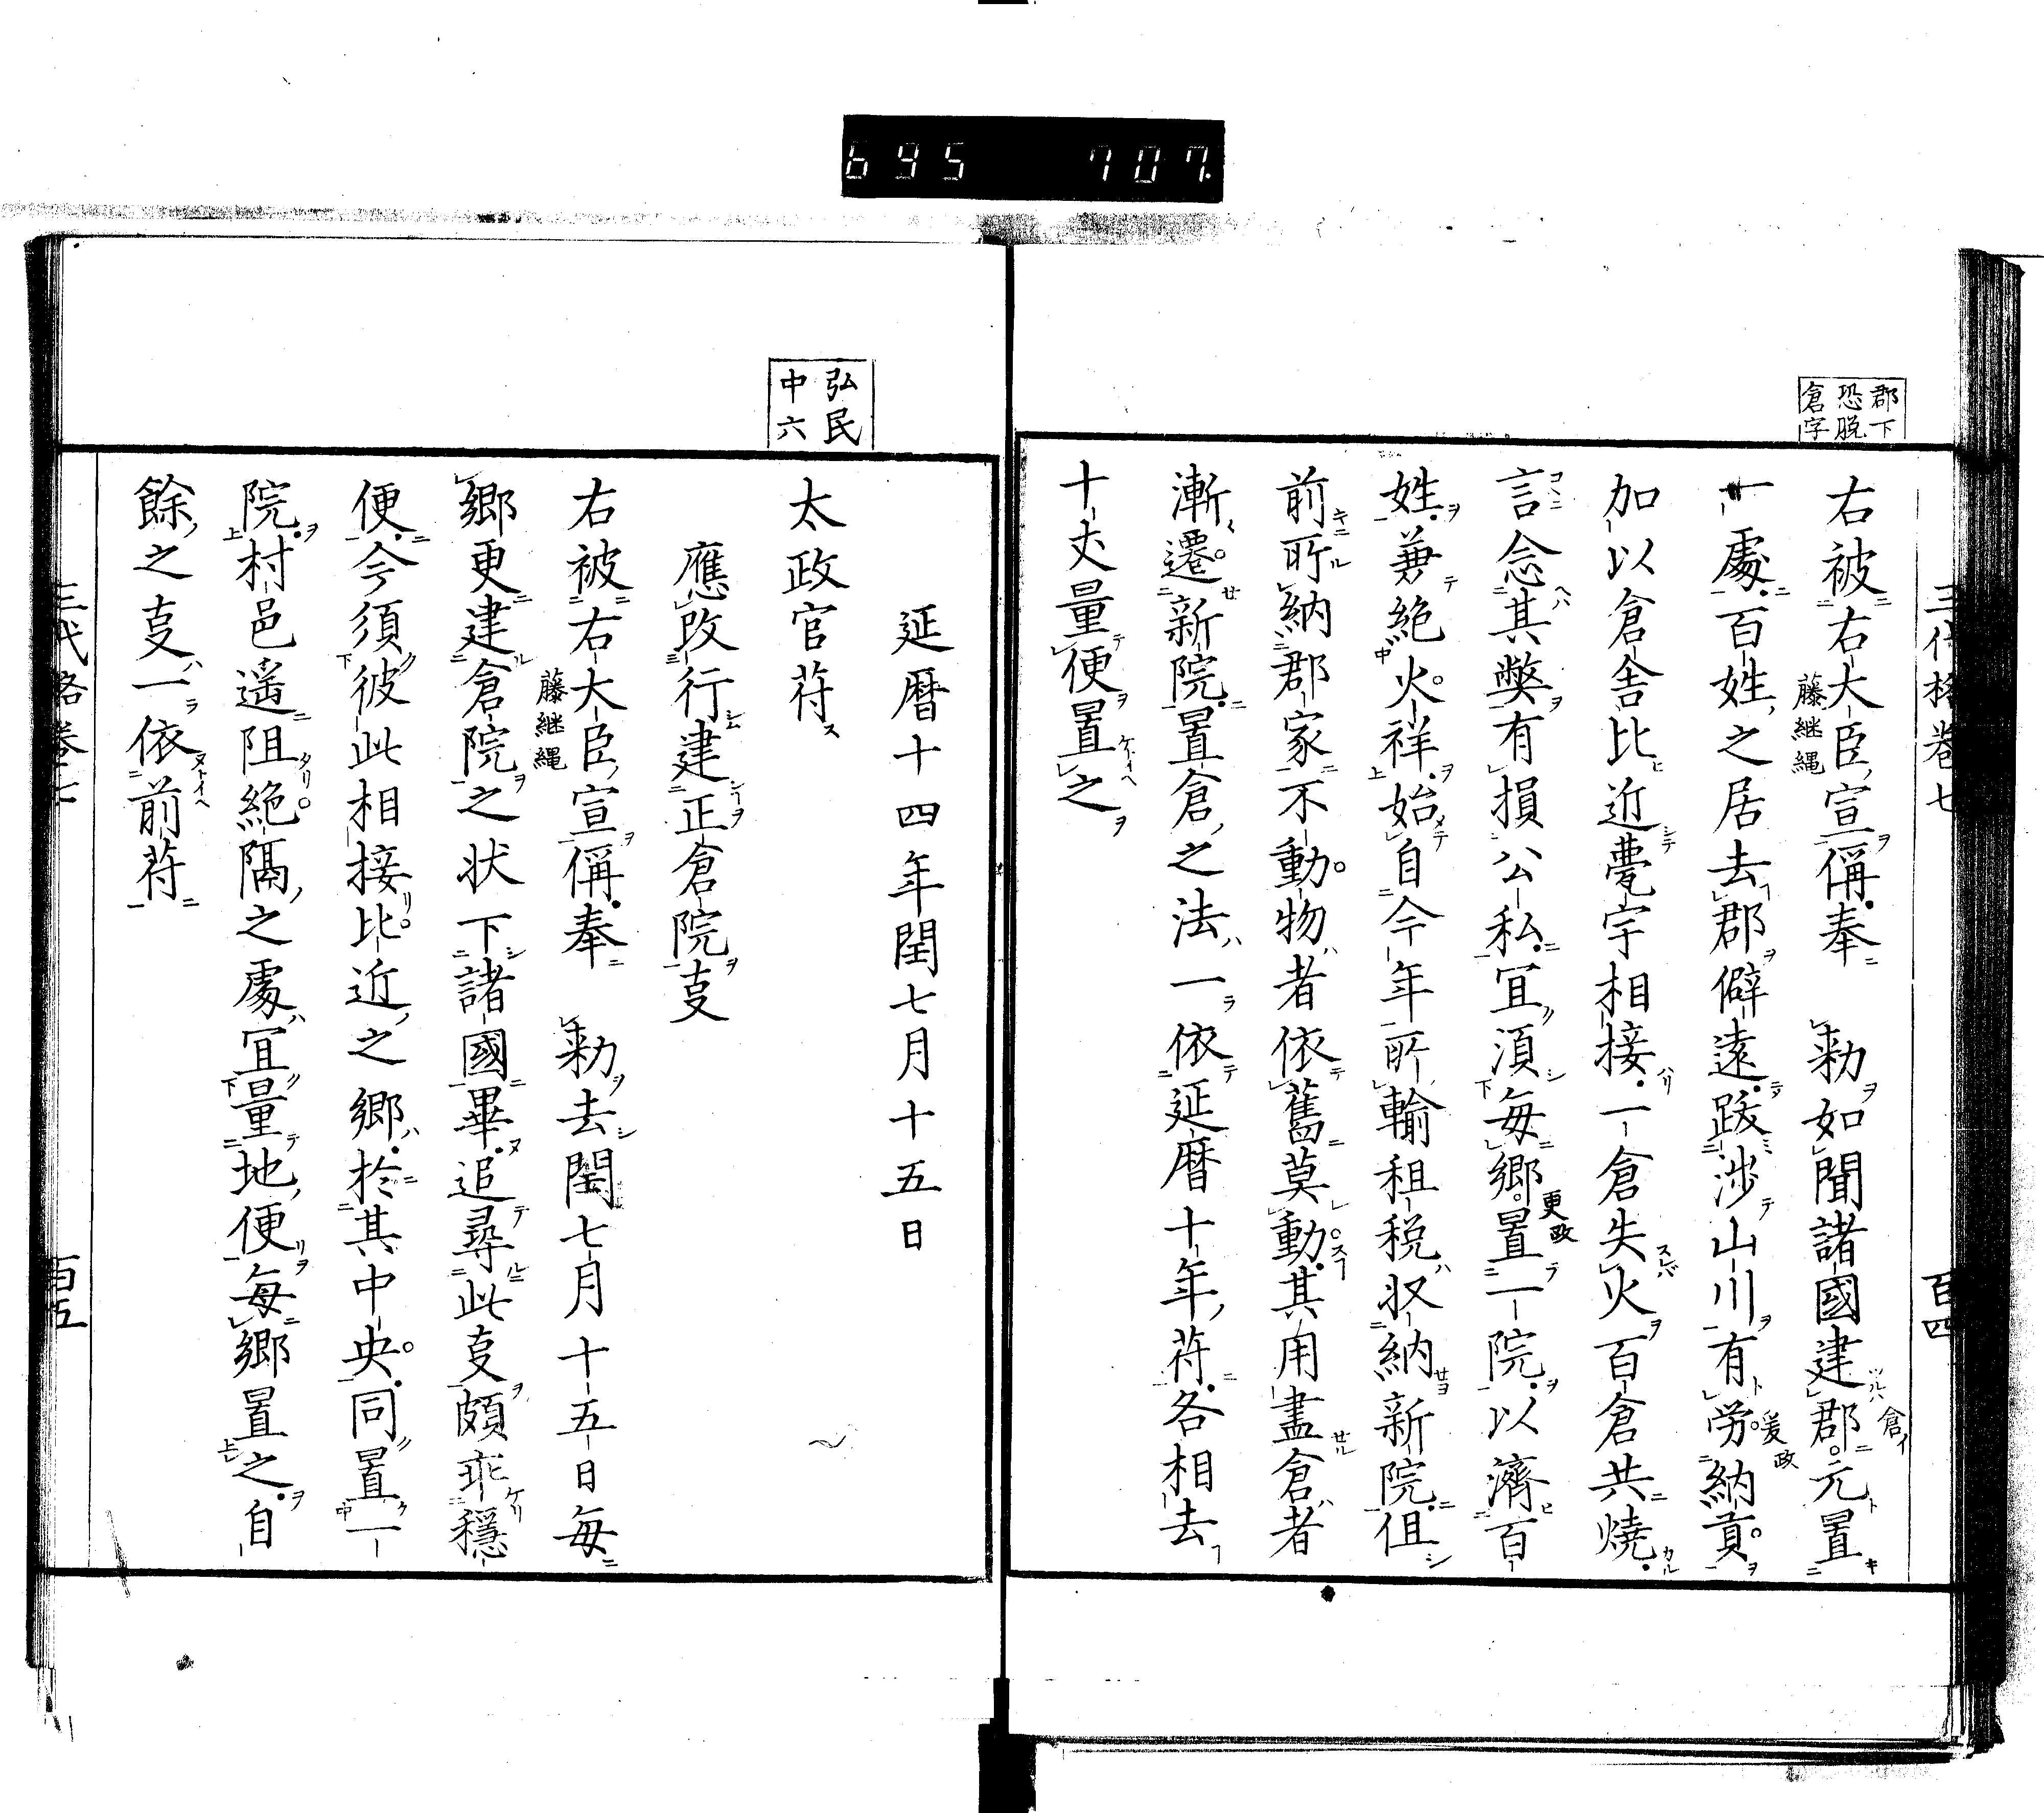 695 707.
三代格巻七
百四
郡下
恐脱
倉字
右被右大臣宣偁奉　勅如聞諸國建郡元置
藤継縄
倉イ
一處百姓之居去郡僻遠跋涉山川有労納貢
爰政
加以倉舎比近甍宇相接一倉失火百倉共焼
言念其弊有損公私冝湏毎郷置一院以濟百
更政
姓兼絶火祥始自今年所輸租税収納新院但
前所納郡家不動物者依舊莫動其用盡倉者
漸遷新院置倉之法一依延暦十年符各相去
十丈量便置之
延暦十四年閏七月十五日
弘民
中六
太政官符
應改行建正倉院㕝
右被右大臣宣偁奉　勅去閏七月十五日毎
藤継縄
郷更建倉院之状下諸國畢追尋此㕝頗乖穏
便今須彼此相接比近之郷於其中央同置一
院村邑遥阻絶隔之處冝量地便毎郷置之自
餘之㕝一依前符
三代格巻七
百五